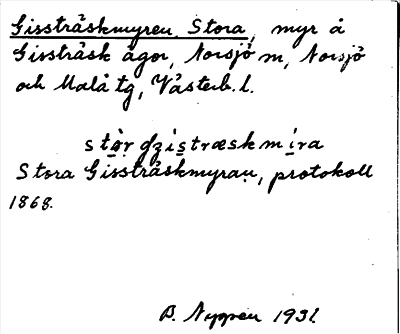 Gissträskmyren, Stora, myr å
Gissträsk ägor, Norsjö sn, Norsjö
och Malå tg, Västerb. l.
Stora Gissträskmyran, protokoll
1868.
B. Nygren 1931.